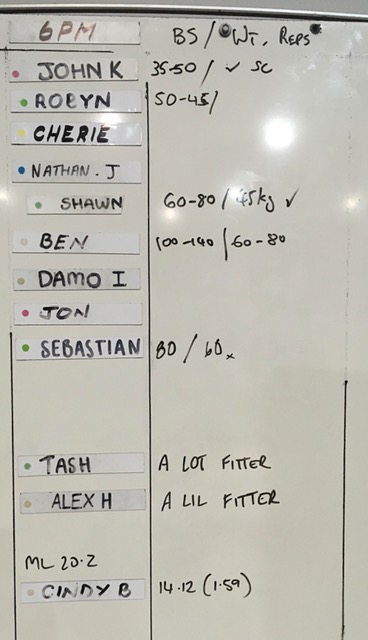 6PM BS / WT. REPS
JOHN K 35-50 / ✓ SC
ROBYN 50-45/
CHERIE
NATHAN. J
SHAWN 60-80 / 45kg ✓
BEN 100-140 / 60-80
DAMO I
JON
SEBASTIAN 80 / 60x
TASH A LOT FITTER
ALEX H A LIL FITTER
ML 20.2
CINDY B 14.12 (1.59)